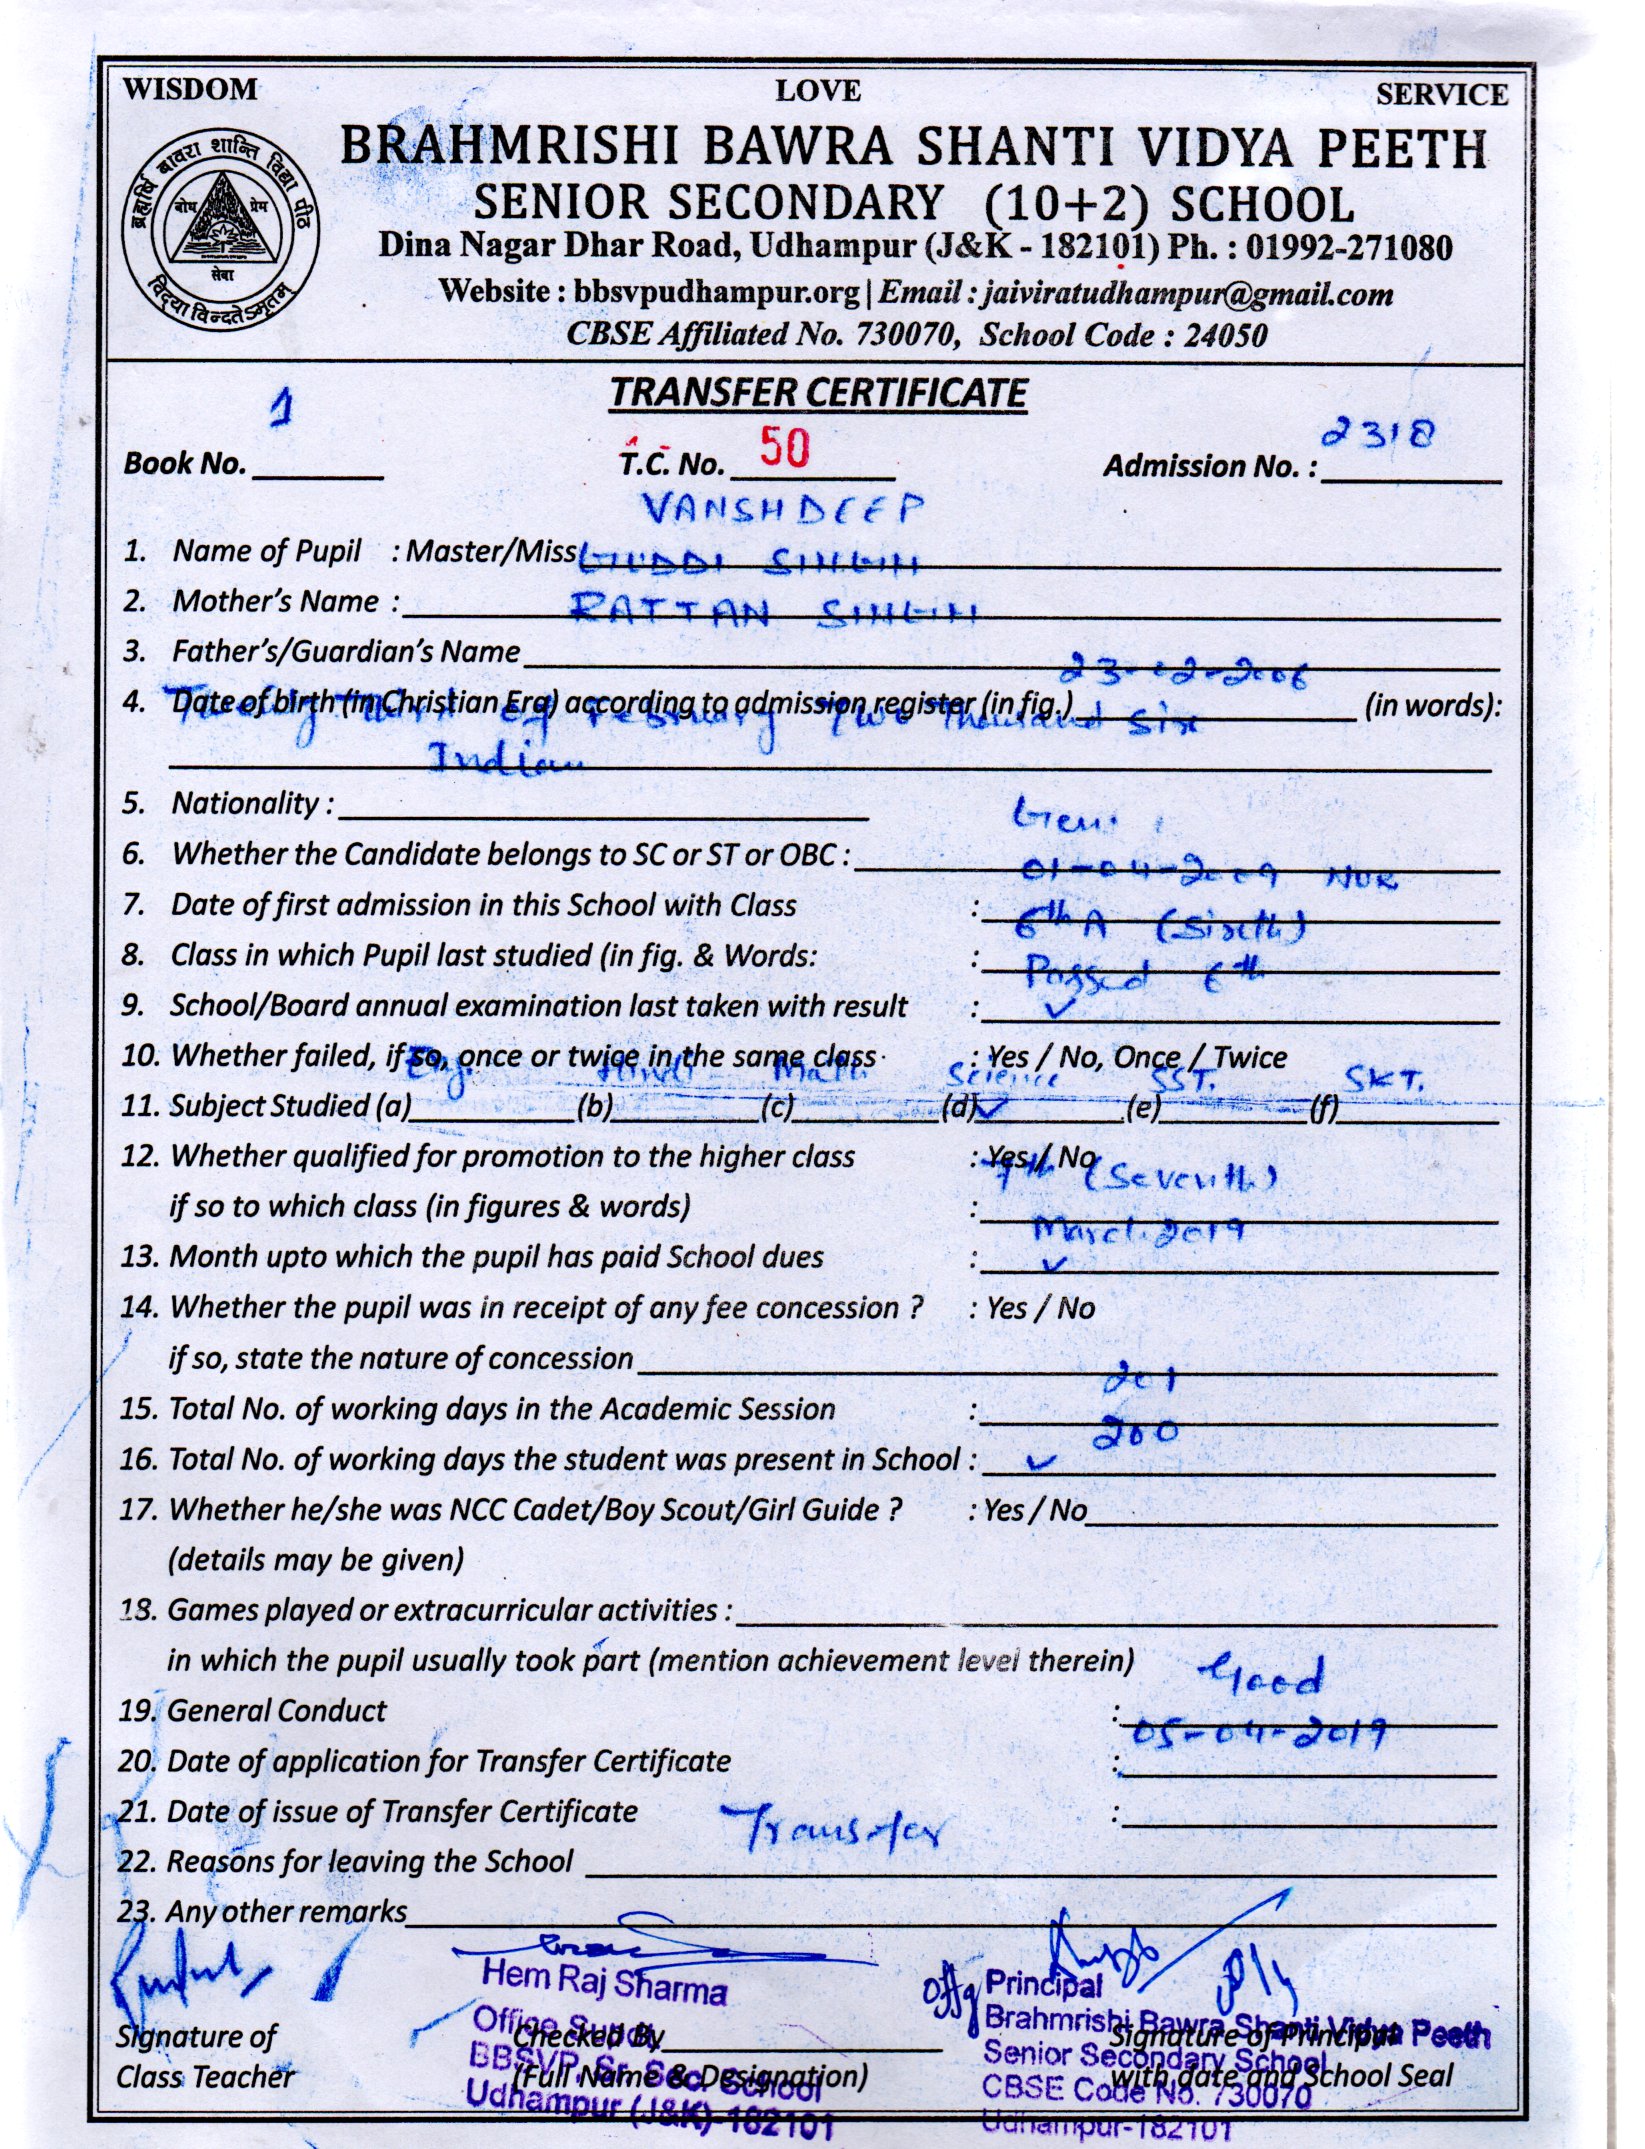 WISDOM LOVE SERVICE
ब्रह्मर्षि बावरा शान्ति विद्या पीठ
बोध प्रेम
सेवा
विद्यया विन्दतेऽमृतम्
BRAHMRISHI BAWRA SHANTI VIDYA PEETH
SENIOR SECONDARY (10+2) SCHOOL
Dina Nagar Dhar Road, Udhampur (J&K - 182101) Ph. : 01992-271080
Website : bbsvpudhampur.org | Email : jaiviratudhampur@gmail.com
CBSE Affiliated No. 730070, School Code : 24050
TRANSFER CERTIFICATE
Book No. 1 T.C. No. 50 Admission No. : 2318
VANSHDEEP
1. Name of Pupil : Master/Miss GUDDI SINGH
2. Mother's Name : RATTAN SINGH
3. Father's/Guardian's Name
23-02-2006
4. Date of birth (in Christian Era) according to admission register (in fig.) (in words):
Twenty Third of February Two Thousand Six
Indian
5. Nationality :
Gen.
6. Whether the Candidate belongs to SC or ST or OBC :
01-04-2009 NUR
7. Date of first admission in this School with Class :
6th A (Sixth)
8. Class in which Pupil last studied (in fig. & Words: :
Passed 6th
9. School/Board annual examination last taken with result :
10. Whether failed, if so, once or twice in the same class : Yes / No, Once / Twice
Eng. Hindi Math Science SST. SKT.
11. Subject Studied (a) (b) (c) (d) (e) (f)
12. Whether qualified for promotion to the higher class : Yes / No
7th (Seventh)
if so to which class (in figures & words) :
March 2019
13. Month upto which the pupil has paid School dues :
14. Whether the pupil was in receipt of any fee concession ? : Yes / No
if so, state the nature of concession
201
15. Total No. of working days in the Academic Session :
200
16. Total No. of working days the student was present in School :
17. Whether he/she was NCC Cadet/Boy Scout/Girl Guide ? : Yes / No
(details may be given)
18. Games played or extracurricular activities :
in which the pupil usually took part (mention achievement level therein)
Good
19. General Conduct :
05-04-2019
20. Date of application for Transfer Certificate :
21. Date of issue of Transfer Certificate :
Transfer
22. Reasons for leaving the School
23. Any other remarks
Hem Raj Sharma
Office Supdt.
BBSVP Sr. Sec. School
Udhampur (J&K)-182101
Offg Principal
Brahmrishi Bawra Shanti Vidya Peeth
Senior Secondary School
CBSE Code No. 730070
Udhampur-182101
Signature of
Class Teacher
Checked By
(Full Name & Designation)
Signature of Principal
with date and School Seal